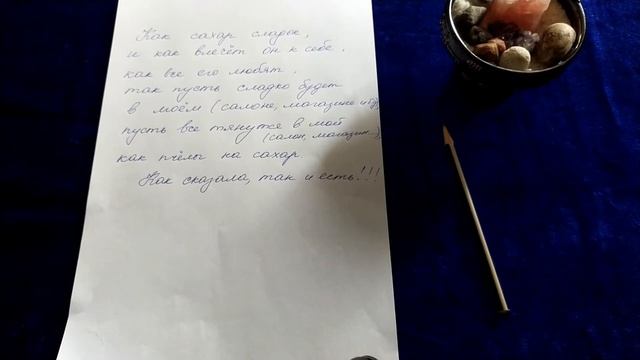 Как сахар сладок,
и как влечёт он к себе,
как все его любят,
так пусть сладко будет
в моём (салоне, магазине и др
пусть все тянутся в мой
(салон, магазин...)
как пчёлы на сахар.
Как сказала, так и есть!!!